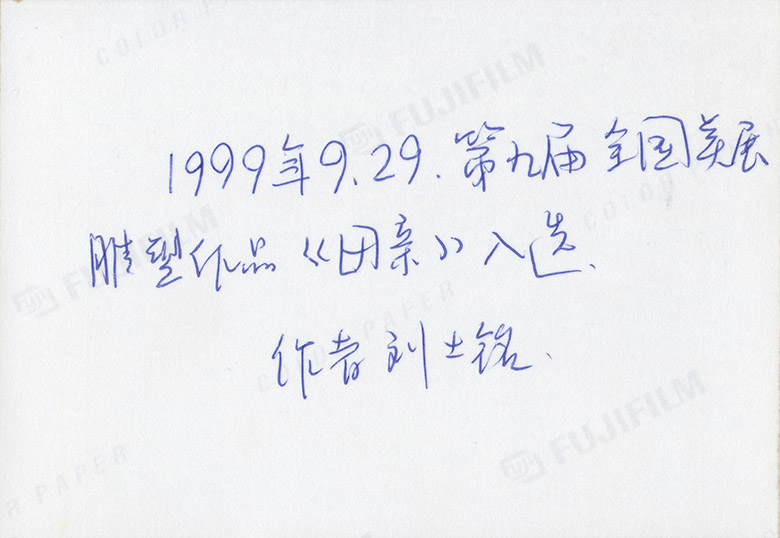 COLOR PAPER
FUJIFILM
1999年9.29.第九届全国美展
COLOR PAPER
雕塑作品《母亲》入选.
FUJIFILM
COLOR PAPER
作者刘士铭.
FUJIFILM
R PAPER